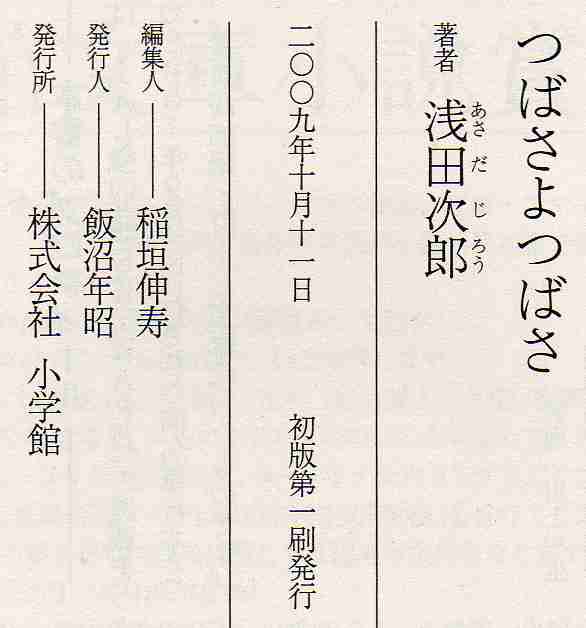 つばさよつばさ
著者 浅田次郎
あさだじろう
二〇〇九年十月十一日 初版第一刷発行
編集人――稲垣伸寿
発行人――飯沼年昭
発行所――株式会社 小学館